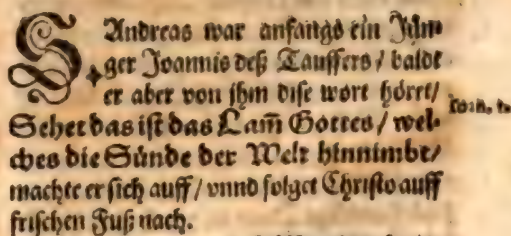 S. Andreas war anfangs ein Jün-
ger Joannis deß Tauffers / baldt
er aber von jhm dise wort höret /
Sehet das ist das Lam̃ Gottes / wel-
ches die Sünde der Welt hinnimbt /
machte er sich auff / vnnd folget Christo auff
frischen Fuß nach.
Ioan. 1.